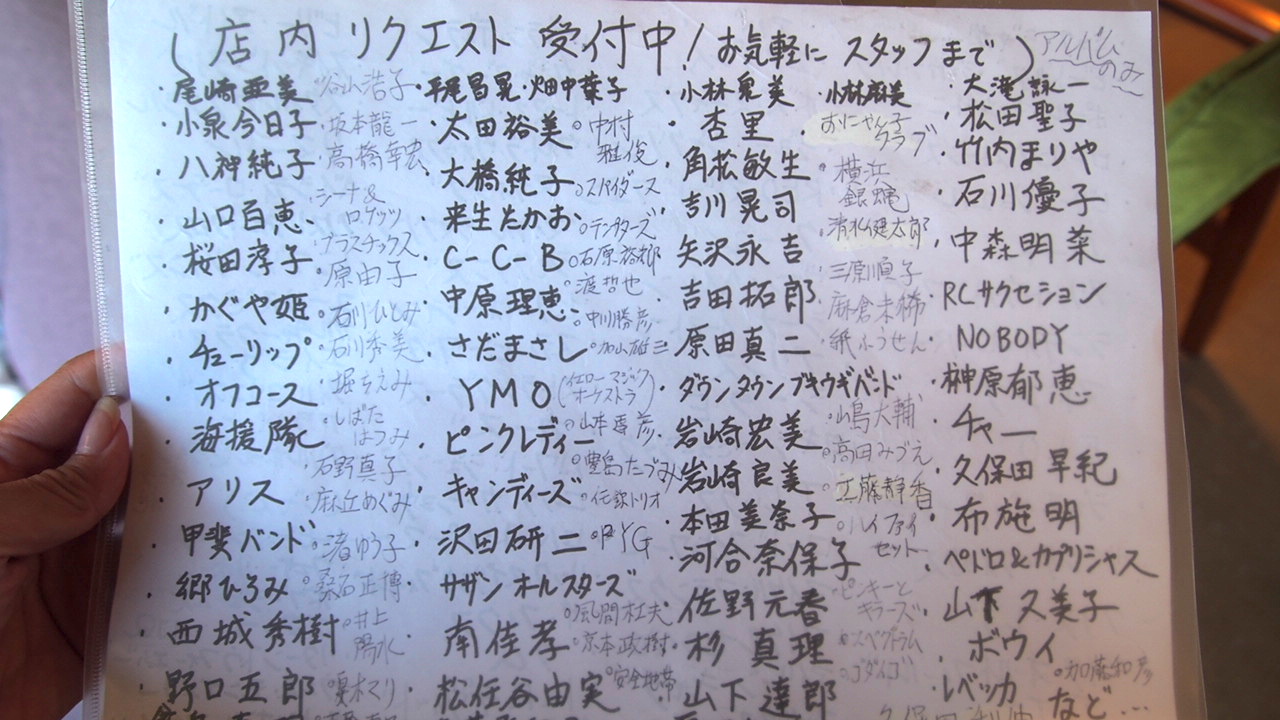 (店内 リクエスト 受付中! お気軽に スタッフまで) アルバムのみ
・尾崎亜美 谷山浩子 ・平尾昌晃・畑中葉子 ・小林泉美 ・小林麻美 ・大滝詠一
・小泉今日子 ・坂本龍一 ・太田裕美 ○中村雅俊 ・杏里 おにゃん子クラブ ・松田聖子
・八神純子 ・高橋幸宏 ・大橋純子 ○スパイダース ・角松敏生 ・横浜銀蝿 ・竹内まりや
・山口百恵 シーナ&ロケッツ ・来生たかお ○テンプターズ ・吉川晃司 ・清水健太郎 ・石川優子
・桜田淳子 プラスチックス ・C-C-B ○石原裕次郎 ・矢沢永吉 ・三原順子 ・中森明菜
・かぐや姫 ・原由子 ・中原理恵 ○渡哲也 ・吉田拓郎 ・麻倉未稀 ・RCサクセション
・チューリップ ○石川ひとみ ・さだまさし ○中川勝彦 ・原田真二 ・紙ふうせん ・NOBODY
・オフコース ・石川秀美 ・YMO(イエローマジックオーケストラ) ○加山雄三 ・ダウンタウンブギウギバンド ・榊原郁恵
・海援隊 ・堀ちえみ ・ピンクレディー ・岩崎宏美 ・チャー
・アリス ・しばたはつみ ・キャンディーズ ○伝録トリオ ・岩崎良美 ・高田みづえ ・久保田早紀
・甲斐バンド ・石野真子 ・沢田研二 ○PYG ・本田美奈子 ・工藤静香 ・布施明
・郷ひろみ ・麻丘めぐみ ・サザンオールスターズ ・河合奈保子 ○ハイファイセット ・ペドロ&カプリシャス
・西城秀樹 ○渚ゆう子 ・南佳孝 ○風間杜夫 ・佐野元春 ・ピンキーとキラーズ ・山下久美子
・野口五郎 ・桑名正博 ・松任谷由実 ○京本政樹 ・杉真理 ○ゴダイゴ ・ボウイ
○井上陽水 ○安全地帯 ・山下達郎 ・レベッカ ○加藤和彦
○夏木マリ など…